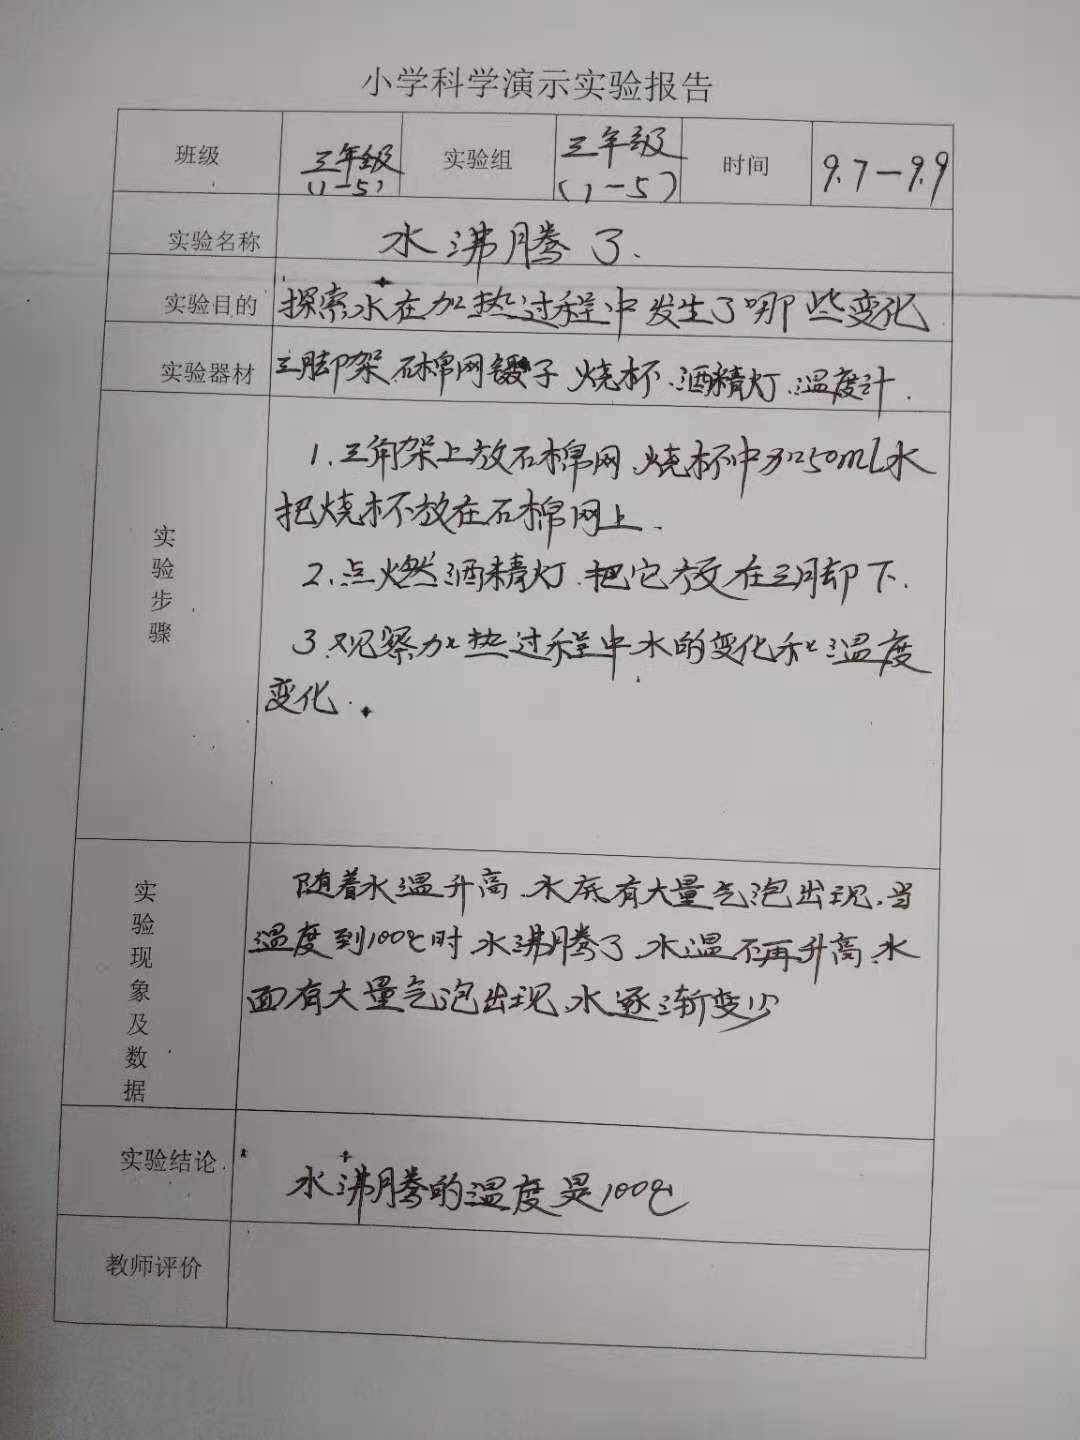 小学科学演示实验报告
班级 三年级(1-5) 实验组 三年级(1-5) 时间 9.7-9.9
实验名称 水沸腾了.
实验目的 探索水在加热过程中发生了哪些变化
实验器材 三脚架 石棉网 镊子 烧杯、酒精灯、温度计.
实验步骤
1.三角架上放石棉网、烧杯中加250mL水
把烧杯放在石棉网上.
2.点燃酒精灯.把它放在三脚下.
3.观察加热过程中水的变化和温度
变化.
实验现象及数据
随着水温升高、水底有大量气泡出现,当
温度到100℃时 水沸腾了、水温不再升高、水
面有大量气泡出现、水逐渐变少
实验结论 水沸腾的温度是100℃
教师评价